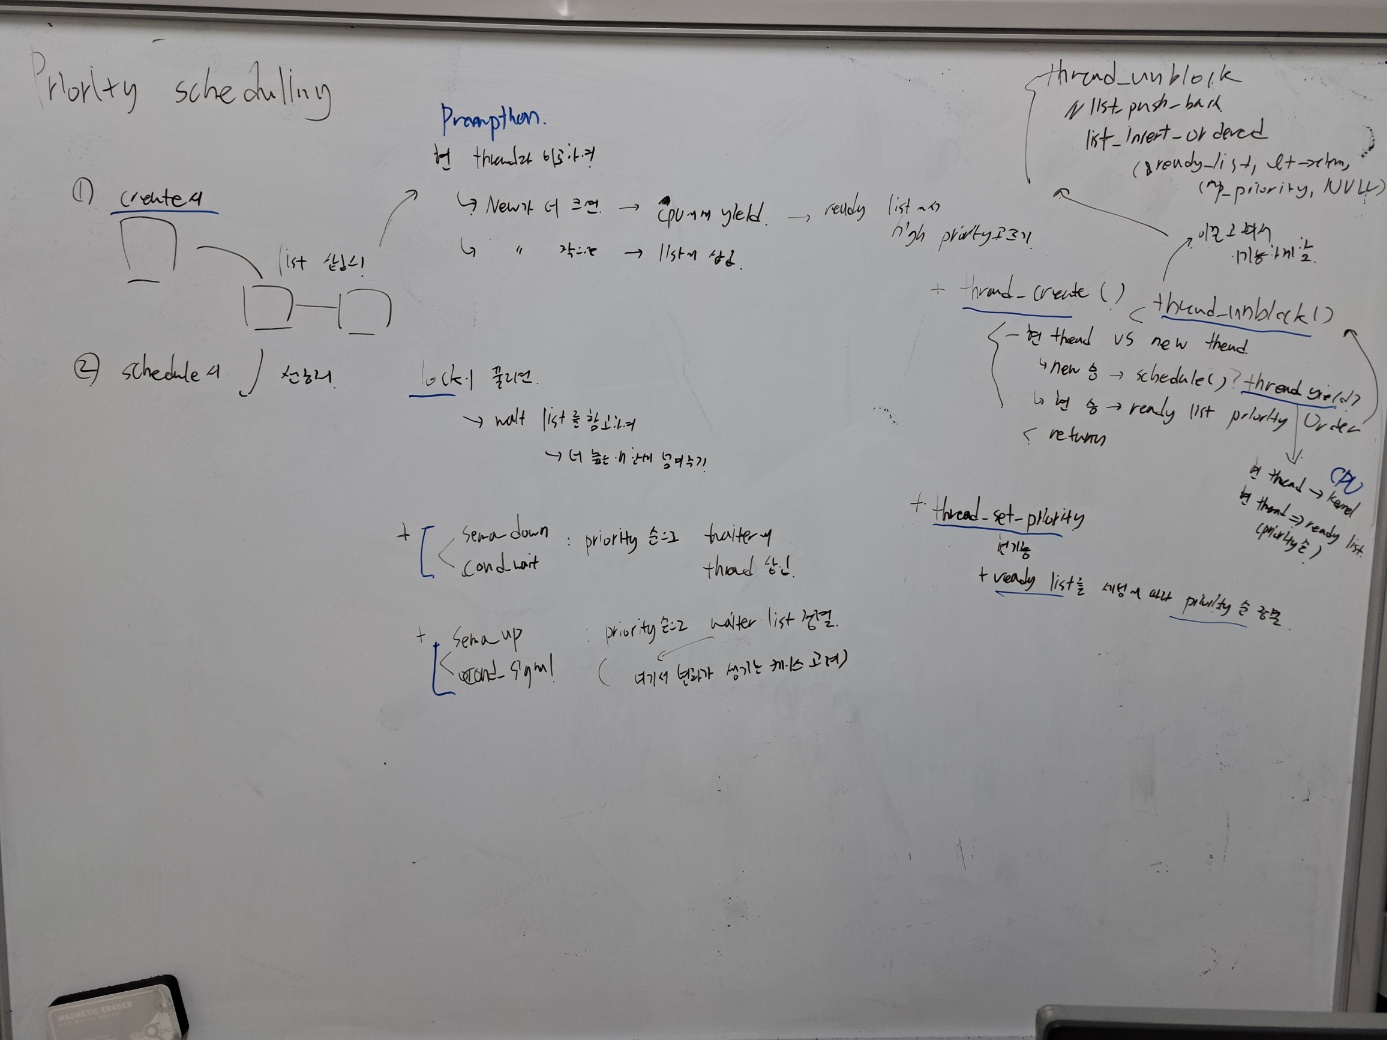 Priority scheduling
① create시
list 삽입시
② schedule시
선택시
Preemption.
현 thread와 비교하여
↳ New가 더 크면 → CPU에서 yield. → ready list에서
high priority 고르기
↳ " 작으면 → list에 삽입.
lock이 풀리면.
→ wait list를 참고하여
→ 더 높은 애한테 넘겨주기
+ sema_down
cond_wait
: priority 순으로 waiter에
thread 삽입.
+ sema_up
cond_signal
: priority 순으로 waiter list 정렬.
(여기서 변화가 생기는 케이스 고려)
thread_unblock
// list_push_back
list_insert_ordered
(&ready_list, &t->elem,
cmp_priority, NULL)
+ thread_create() < thread_unblock()
- 현 thread vs new thread
↳ new 승 → schedule()? thread_yield?
↳ 현 승 → ready list priority order
< return
현 thread → kernel
CPU
현 thread ⇒ ready list
(priority순)
+ thread_set_priority
+ ready list를 priority 순
MAGNETIC ERASER